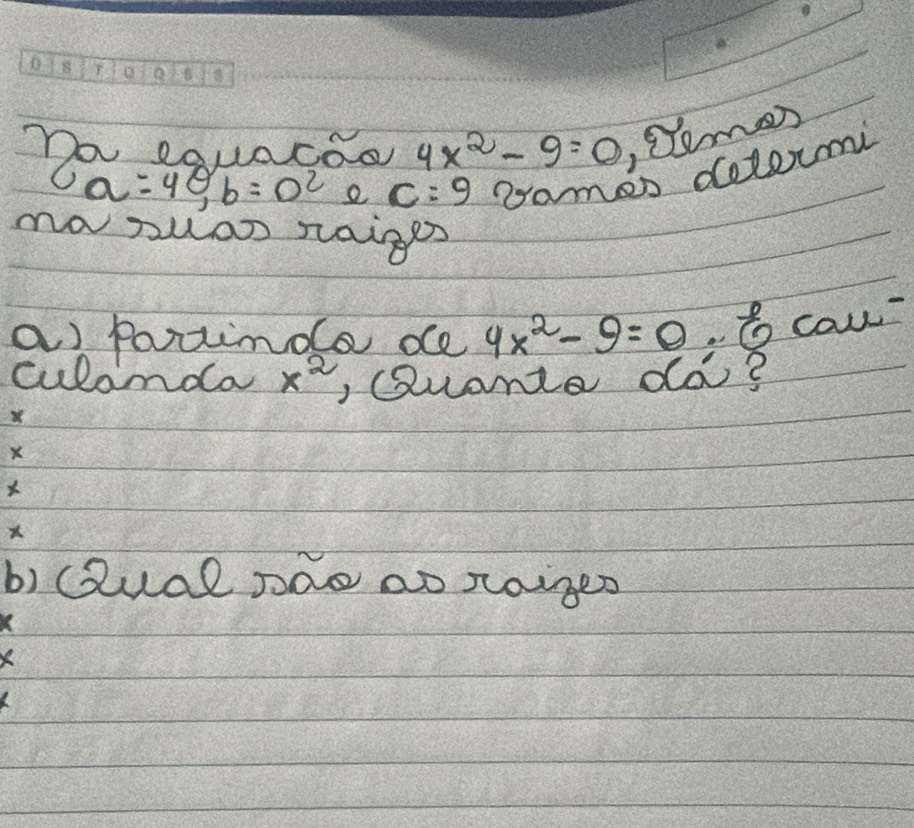 Na equação 4x² - 9 = 0, Temos
a = 4, b = 0² e c = 9 vamos determi
na suas raizes
a) Partindo de 4x² - 9 = 0. e cau-
culando x², Quanto dá?
x
x
x
x
b) Qual são as raizes
x
x
x